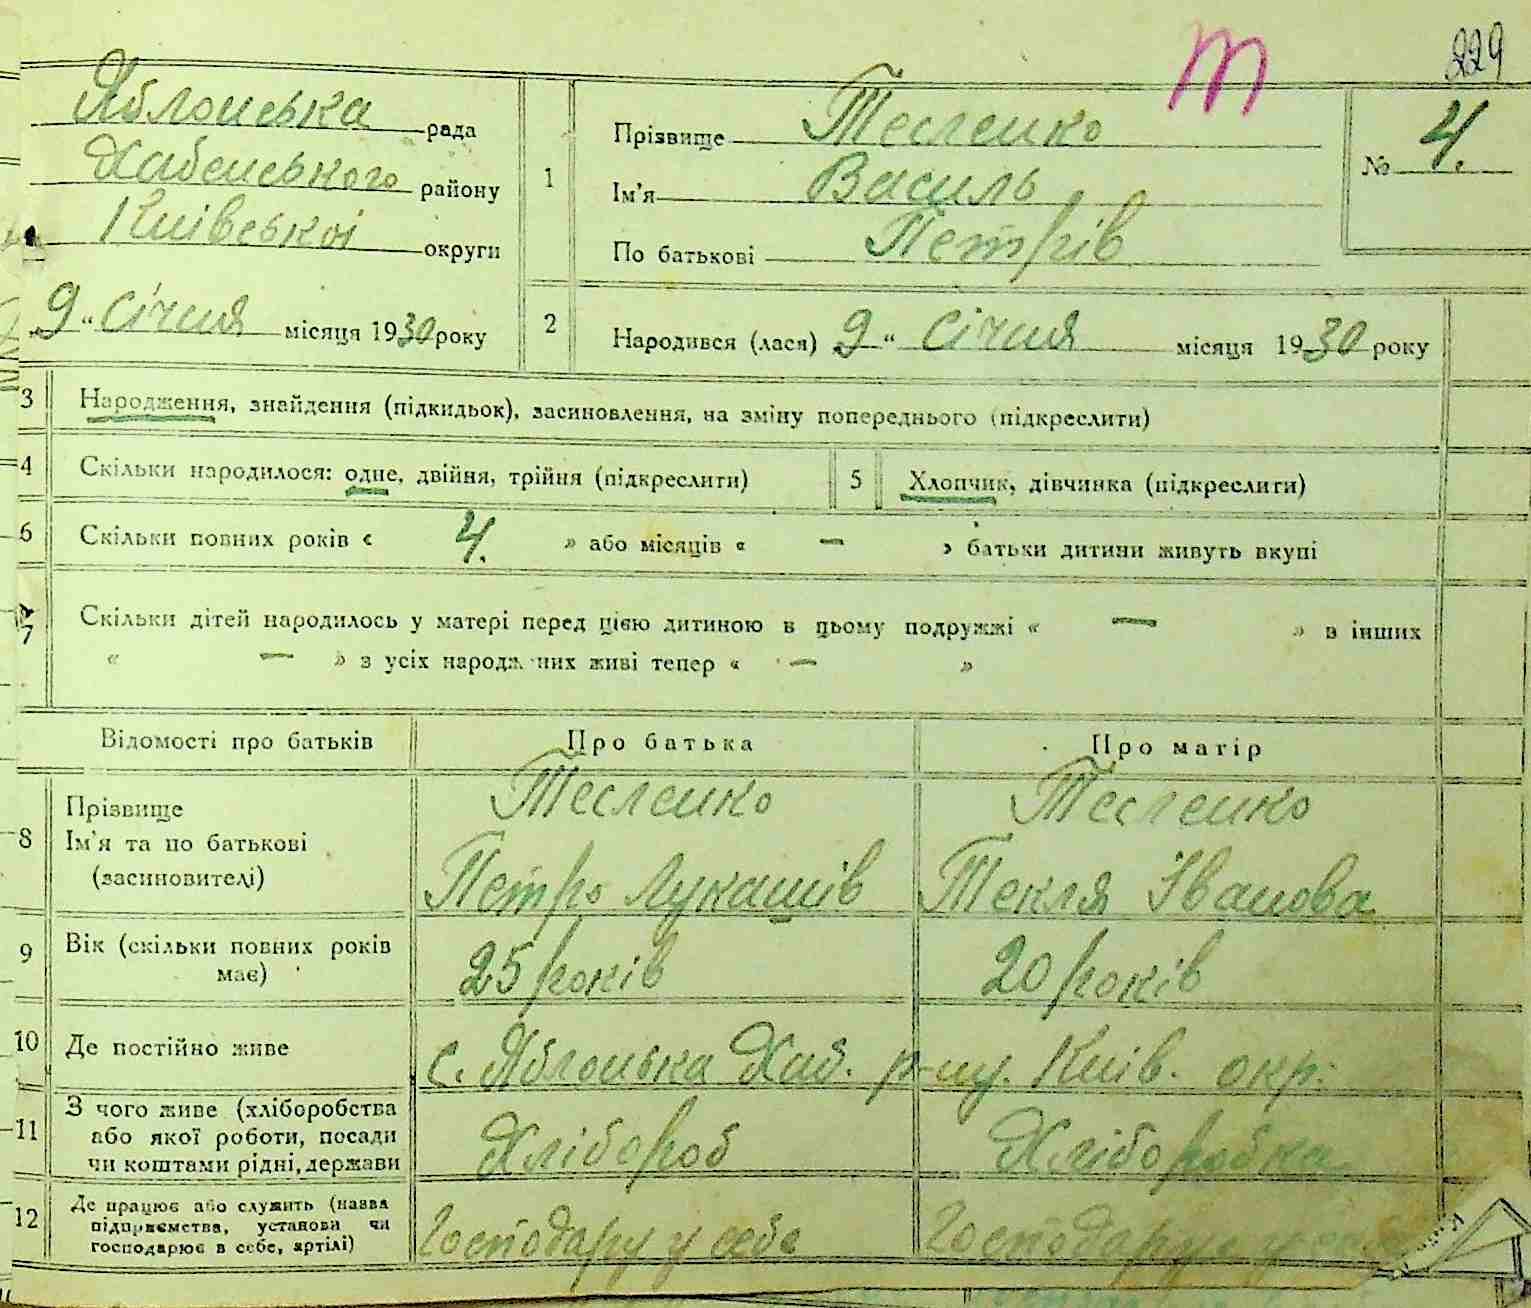 Т
229
Яблонська рада
Хабенського району
Київської округи
„9“ січня місяця 1930 року
1
Прізвище Тесленко
Ім'я Василь
По батькові Петрів
№ 4.
2
Народився (лася) 9 “ січня місяця 1930 року
3 Народження, знайдення (підкидьок), засиновлення, на зміну попереднього (підкреслити)
4 Скільки народилося: одне, двійня, трійня (підкреслити) 5 Хлопчик, дівчинка (підкреслити)
6 Скільки повних років « 4. » або місяців « — » батьки дитини живуть вкупі
7 Скільки дітей народилось у матері перед цією дитиною в цьому подружжі « — » в інших
« — » з усіх народж них живі тепер « — »
Відомості про батьків Про батька Про матір
8 Прізвище Тесленко Тесленко
Ім'я та по батькові Петро Лукашів Текля Іванова
(засиновителі)
9 Вік (скільки повних років 25 років 20 років
має)
10 Де постійно живе с. Яблонська Хаб. р-ну. Київ. окр.
11 З чого живе (хліборобства Хлібороб Хліборобка
або якої роботи, посади
чи коштами рідні, держави
12 Де працює або служить (назва Господарує у себе Господарує
підприємства, установи чи
господарює в себе, артілі)